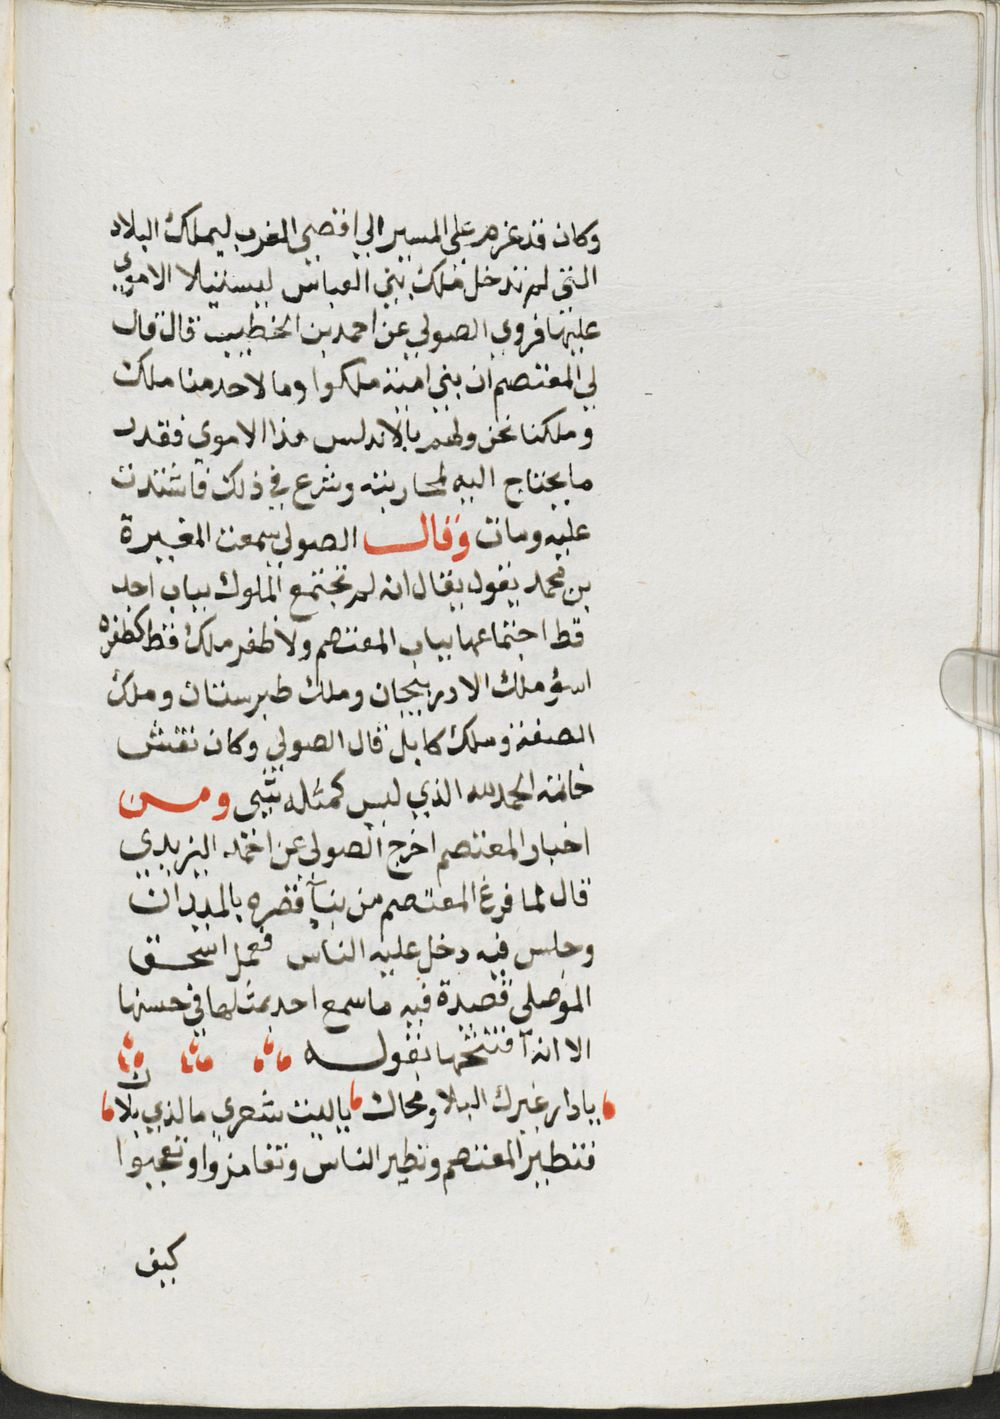 وكان قد عزم على المسير الي اقصي المغرب ليملك البلاد
التي لم تدخل ملك بني العباس ليستيلا الاموي
عليها فروي الصولي عن احمد بن الخطيب قال قال
لي المعتصم ان بني امية ملكوا وما لاحد منا ملك
وملكنا نحن ولهم بالاندلس هذا الاموي فقدر
ما يحتاج اليه لمحاربته وشرع في ذلك فاشتدت
عليه ومات وقال الصولي سمعت المغيرة
بن محمد يقول يقال انه لم تجتمع الملوك بباب احد
قط اجتماعها بباب المعتصم ولا ظفر ملك قط كظفره
اسؤ ملك الادربيجان وملك طبرستان وملك
الصفة وملك كابل قال الصولي وكان نقش
خاتمه الحمد لله الذي ليس كمثله شيي ومن
اخبار المعتصم اخرج الصولي عن احمد اليزيدي
قال لما فرغ المعتصم من بنآ قصره بالميدان
وجلس فيه دخل عليه الناس فعمل اسحق
الموصلي قصيدة فيه ما سمع احد بمثلها في حسنها
الا انه آفتتحها بقوله
يا دار غيرك البلا ومحاك يا ليت شعري ما الذي بلاك
فتطير المعتصم وتطير الناس وتغامزوا وتعجبوا
كيف